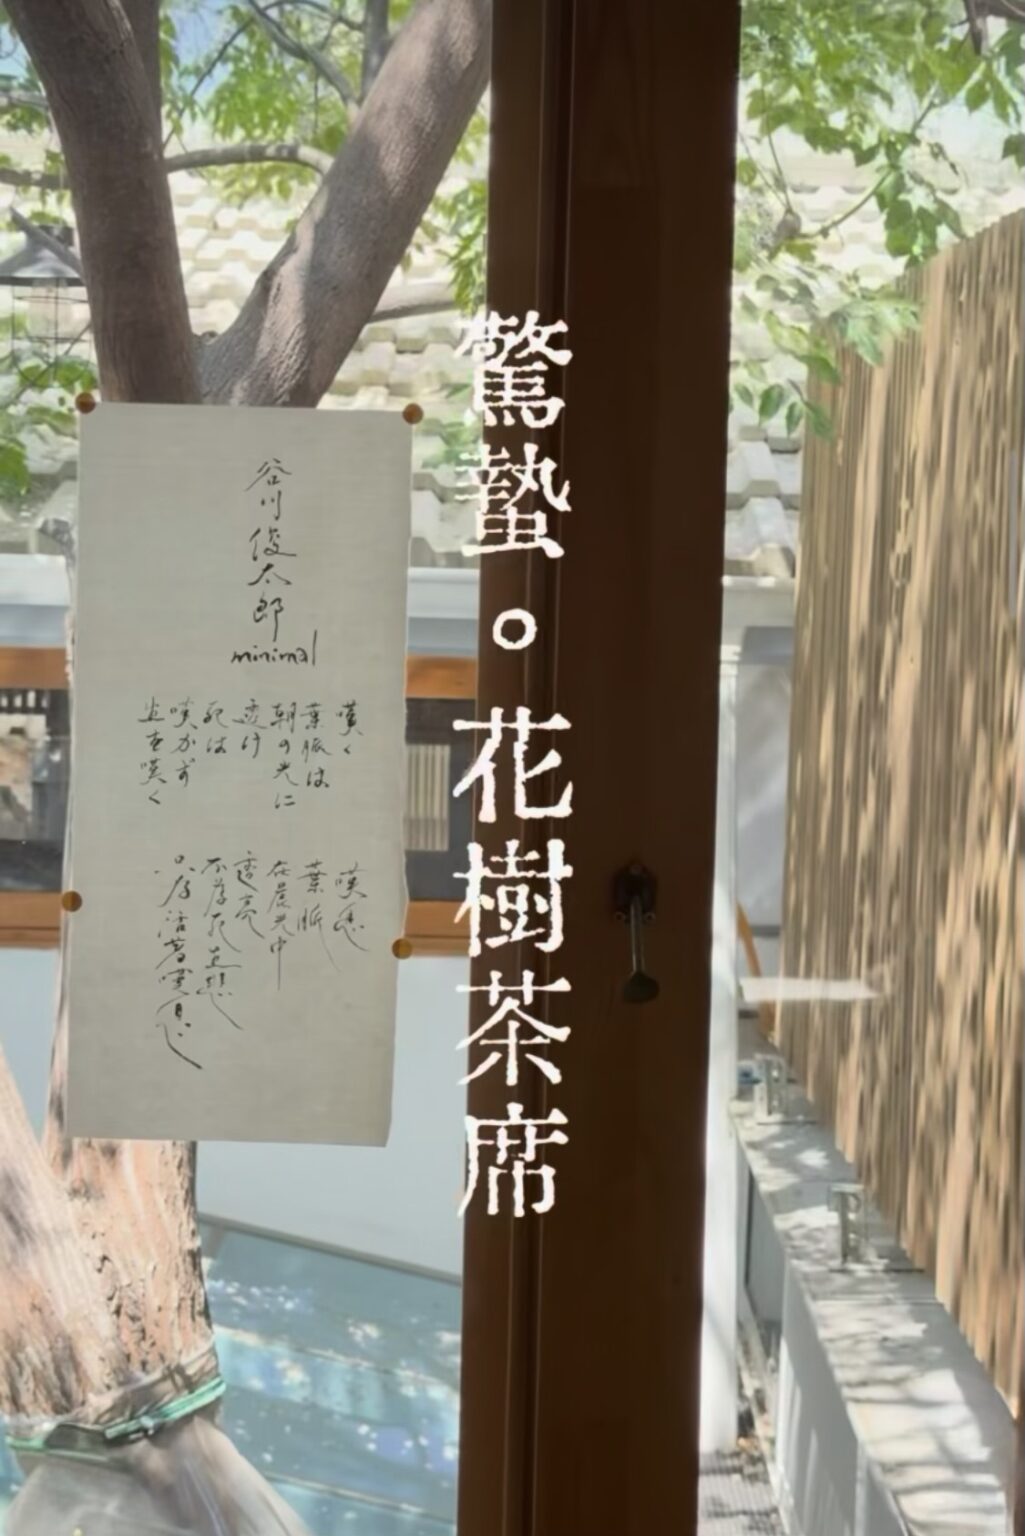 驚蟄。花樹茶席
谷川俊太郎
minimal
嘆く
葉脈は
朝の光に
透け
死は
嘆かず
生を嘆く
嘆息
葉脈
在晨光中
透亮
不為死
只為活著嘆息